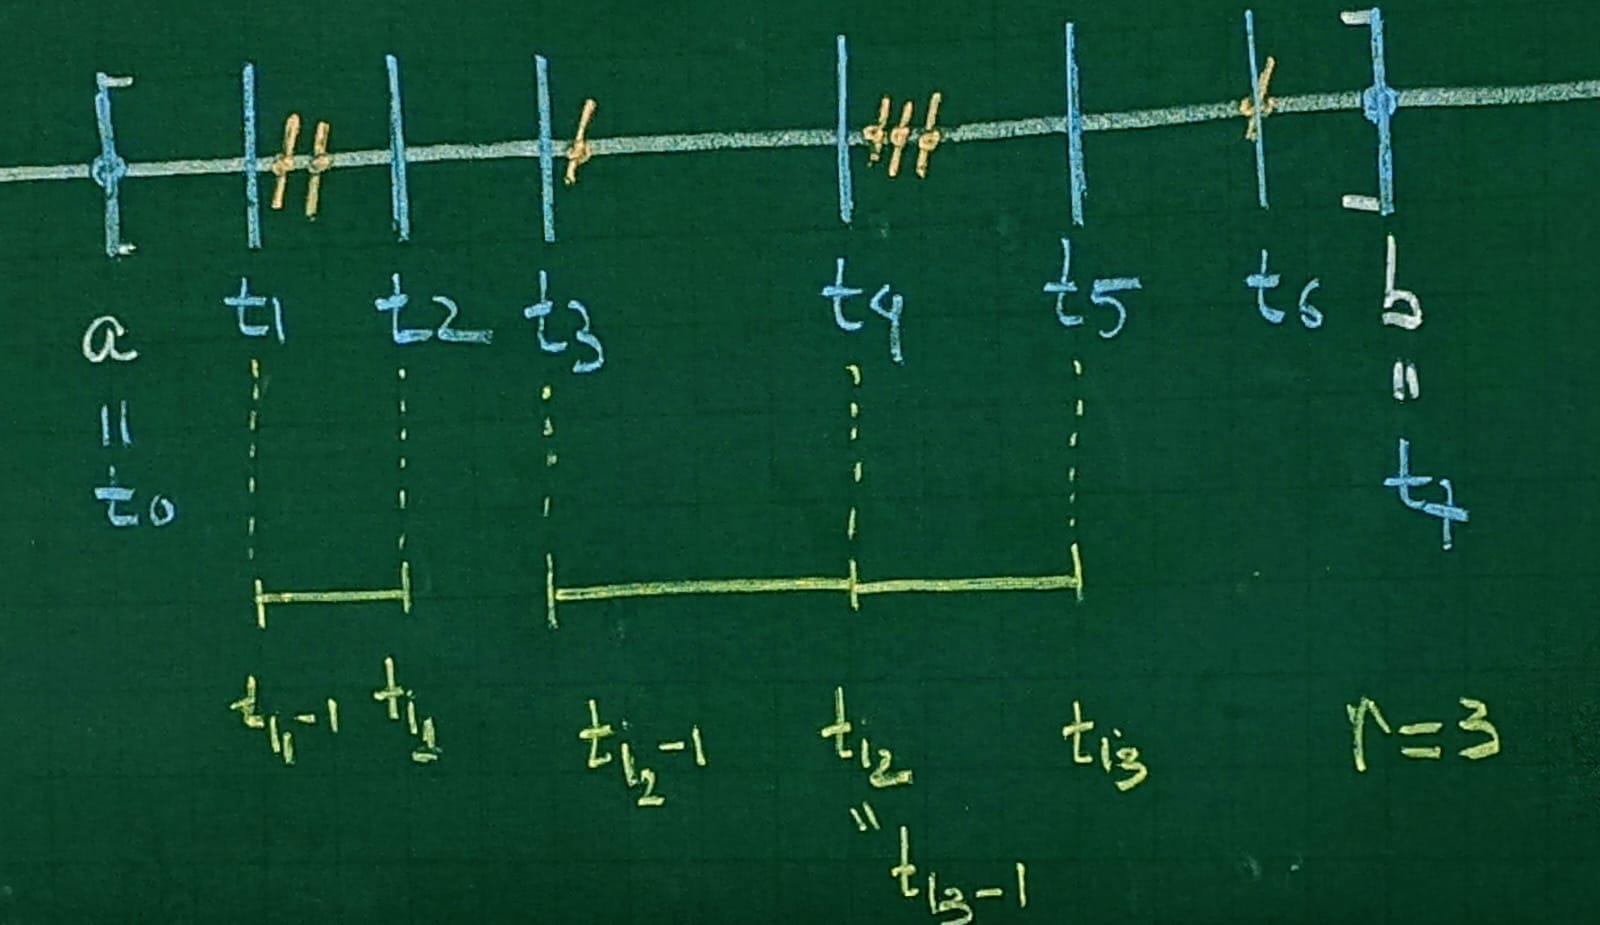 t1 t2 t3 t4 t5 t6
a b
=
t0 t7
t_{i_1-1} t_{i_1} t_{i_2-1} t_{i_2} t_{i_3} r=3
=
t_{i_3-1}